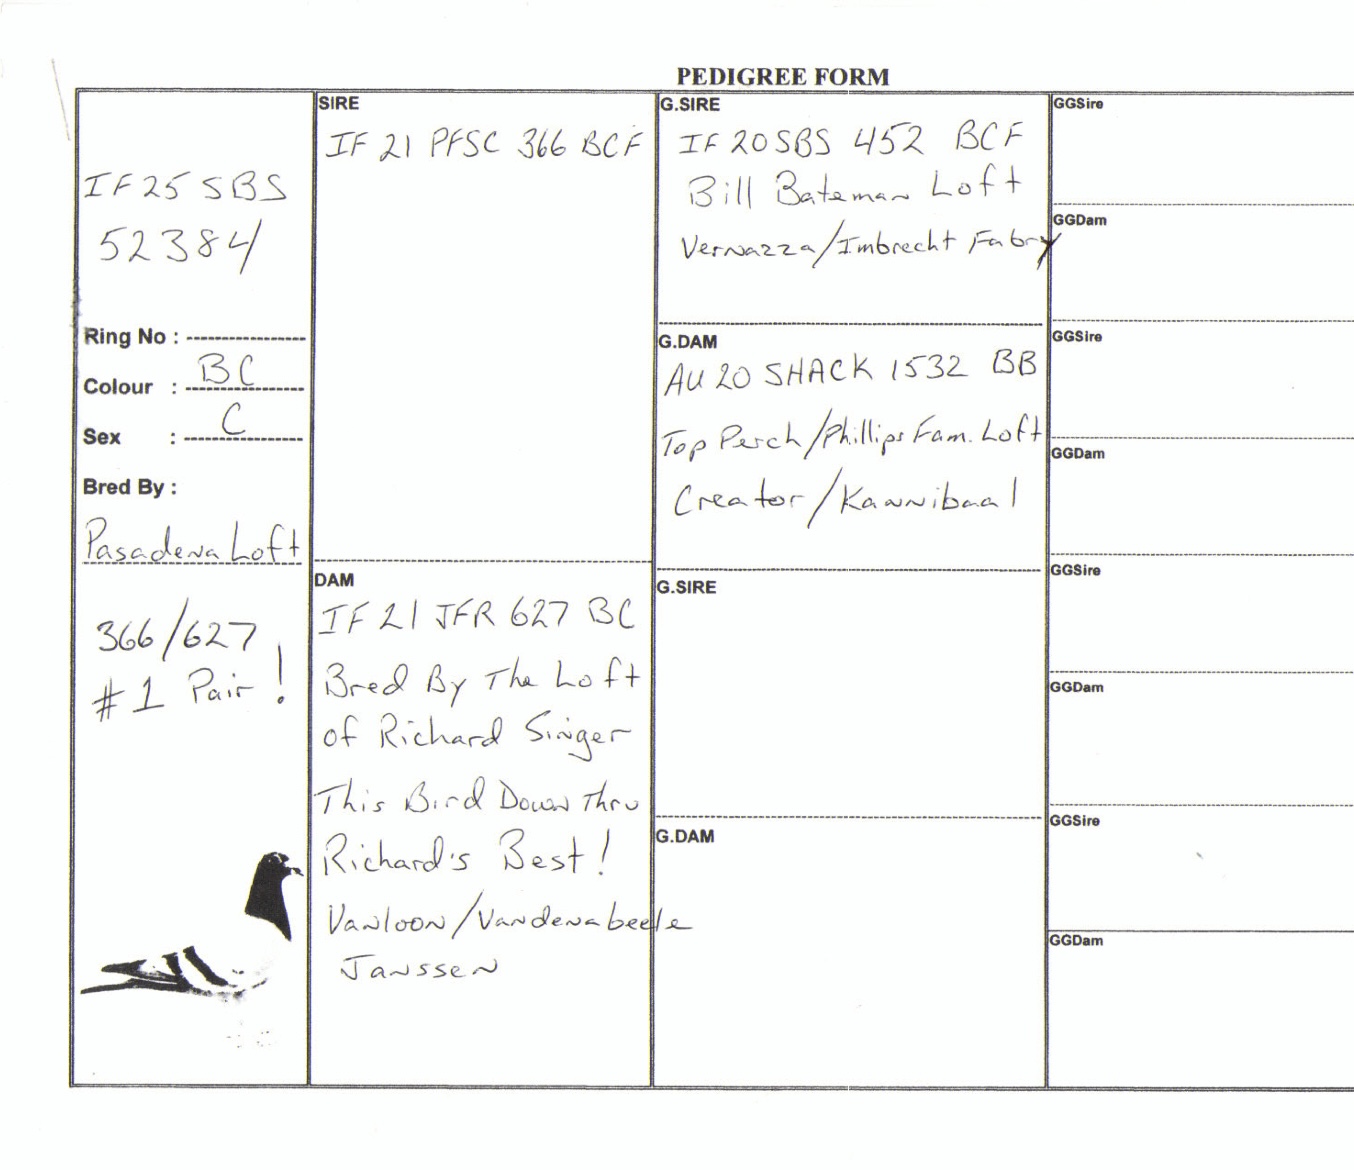 PEDIGREE FORM
IF 25 SBS
52384
Ring No :
Colour : BC
Sex : C
Bred By :
Pasadena Loft
366/627
#1 Pair !
SIRE
IF 21 PFSC 366 BCF
DAM
IF 21 JFR 627 BC
Bred By The Loft
of Richard Singer
This Bird Down Thru
Richard's Best!
Vanloon/Vandenabeele
Janssen
G.SIRE
IF 20 SBS 452 BCF
Bill Bateman Loft
Vernazza/Imbrecht Fabry
G.DAM
AU 20 SHACK 1532 BB
Top Perch/Phillips Fam. Loft
Creator/Kannibaal
G.SIRE
G.DAM
GGSire
GGDam
GGSire
GGDam
GGSire
GGDam
GGSire
GGDam